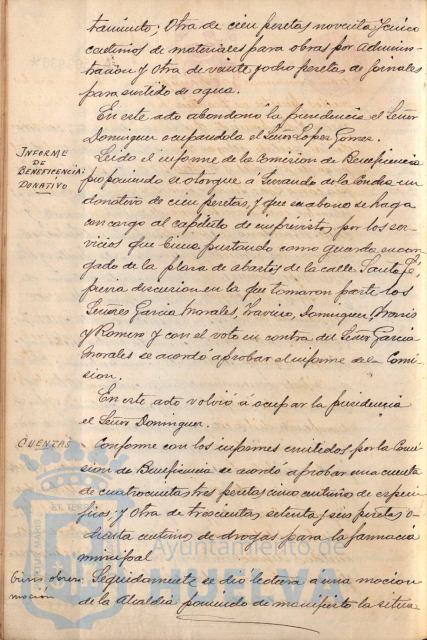 tamiento; Otra de cien pesetas noventa y cinco
centimos de materiales para obras por Adminis-
tracion y Otra de veinte y ocho pesetas de jornales
para surtido de agua.
En este acto abandonó la presidencia el Señor
Dominguez ocupandola el Señor Lopez Gomez.
INFORME
DE
BENEFICENCIA:
DONATIVO
Leido el informe de la Comision de Beneficencia
proponiendo se otorgue á Fernando de la Concha un
donativo de cien pesetas, y que su abono se haga
con cargo al capitulo de imprevistos, por los ser-
vicios que viene prestando como guarda encar
gado de la plaza de abastos de la calle Santa Fé,
previa discusion en la que tomaron parte los
Señores Garcia Morales, Traviero, Dominguez
y Romero y con el voto en contra del Señor Garcia
Morales se acordó aprobar el informe de la Comi-
sion.
En este acto volvió á ocupar la presidencia
el Señor Dominguez.
CUENTAS
Conforme con los informes emitidos por la Comi-
sion de Beneficencia se acordó aprobar una cuenta
de cuatrocientas tres pesetas centimos de especi-
ficos; y Otra de trescientas setenta y seis pesetas o-
chenta centimos de drogas para la farmacia
municipal
Crisis obrera:
mocion
Seguidamente se dió lectura a una mocion
de la Alcaldia poniendo de manifiesto la situa-
Ayuntamiento de
HUELVA